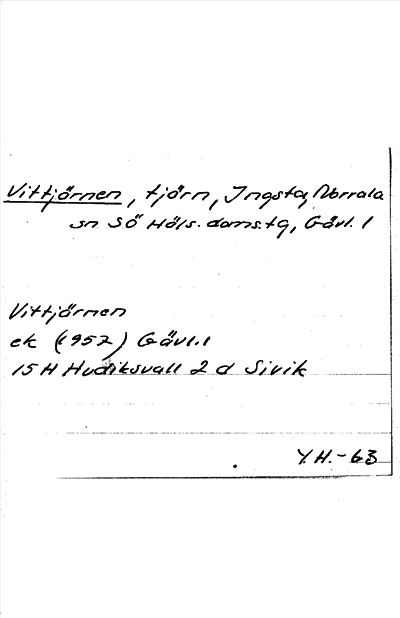 Vittjärnen, tjärn, Ingsta, Norrala
sn SÖ Häls. doms.tg, Gävl. l
Vittjärnen
ek (1952) Gävl.l
15H Hudiksvall 2 d Sivik
Y.H.-63